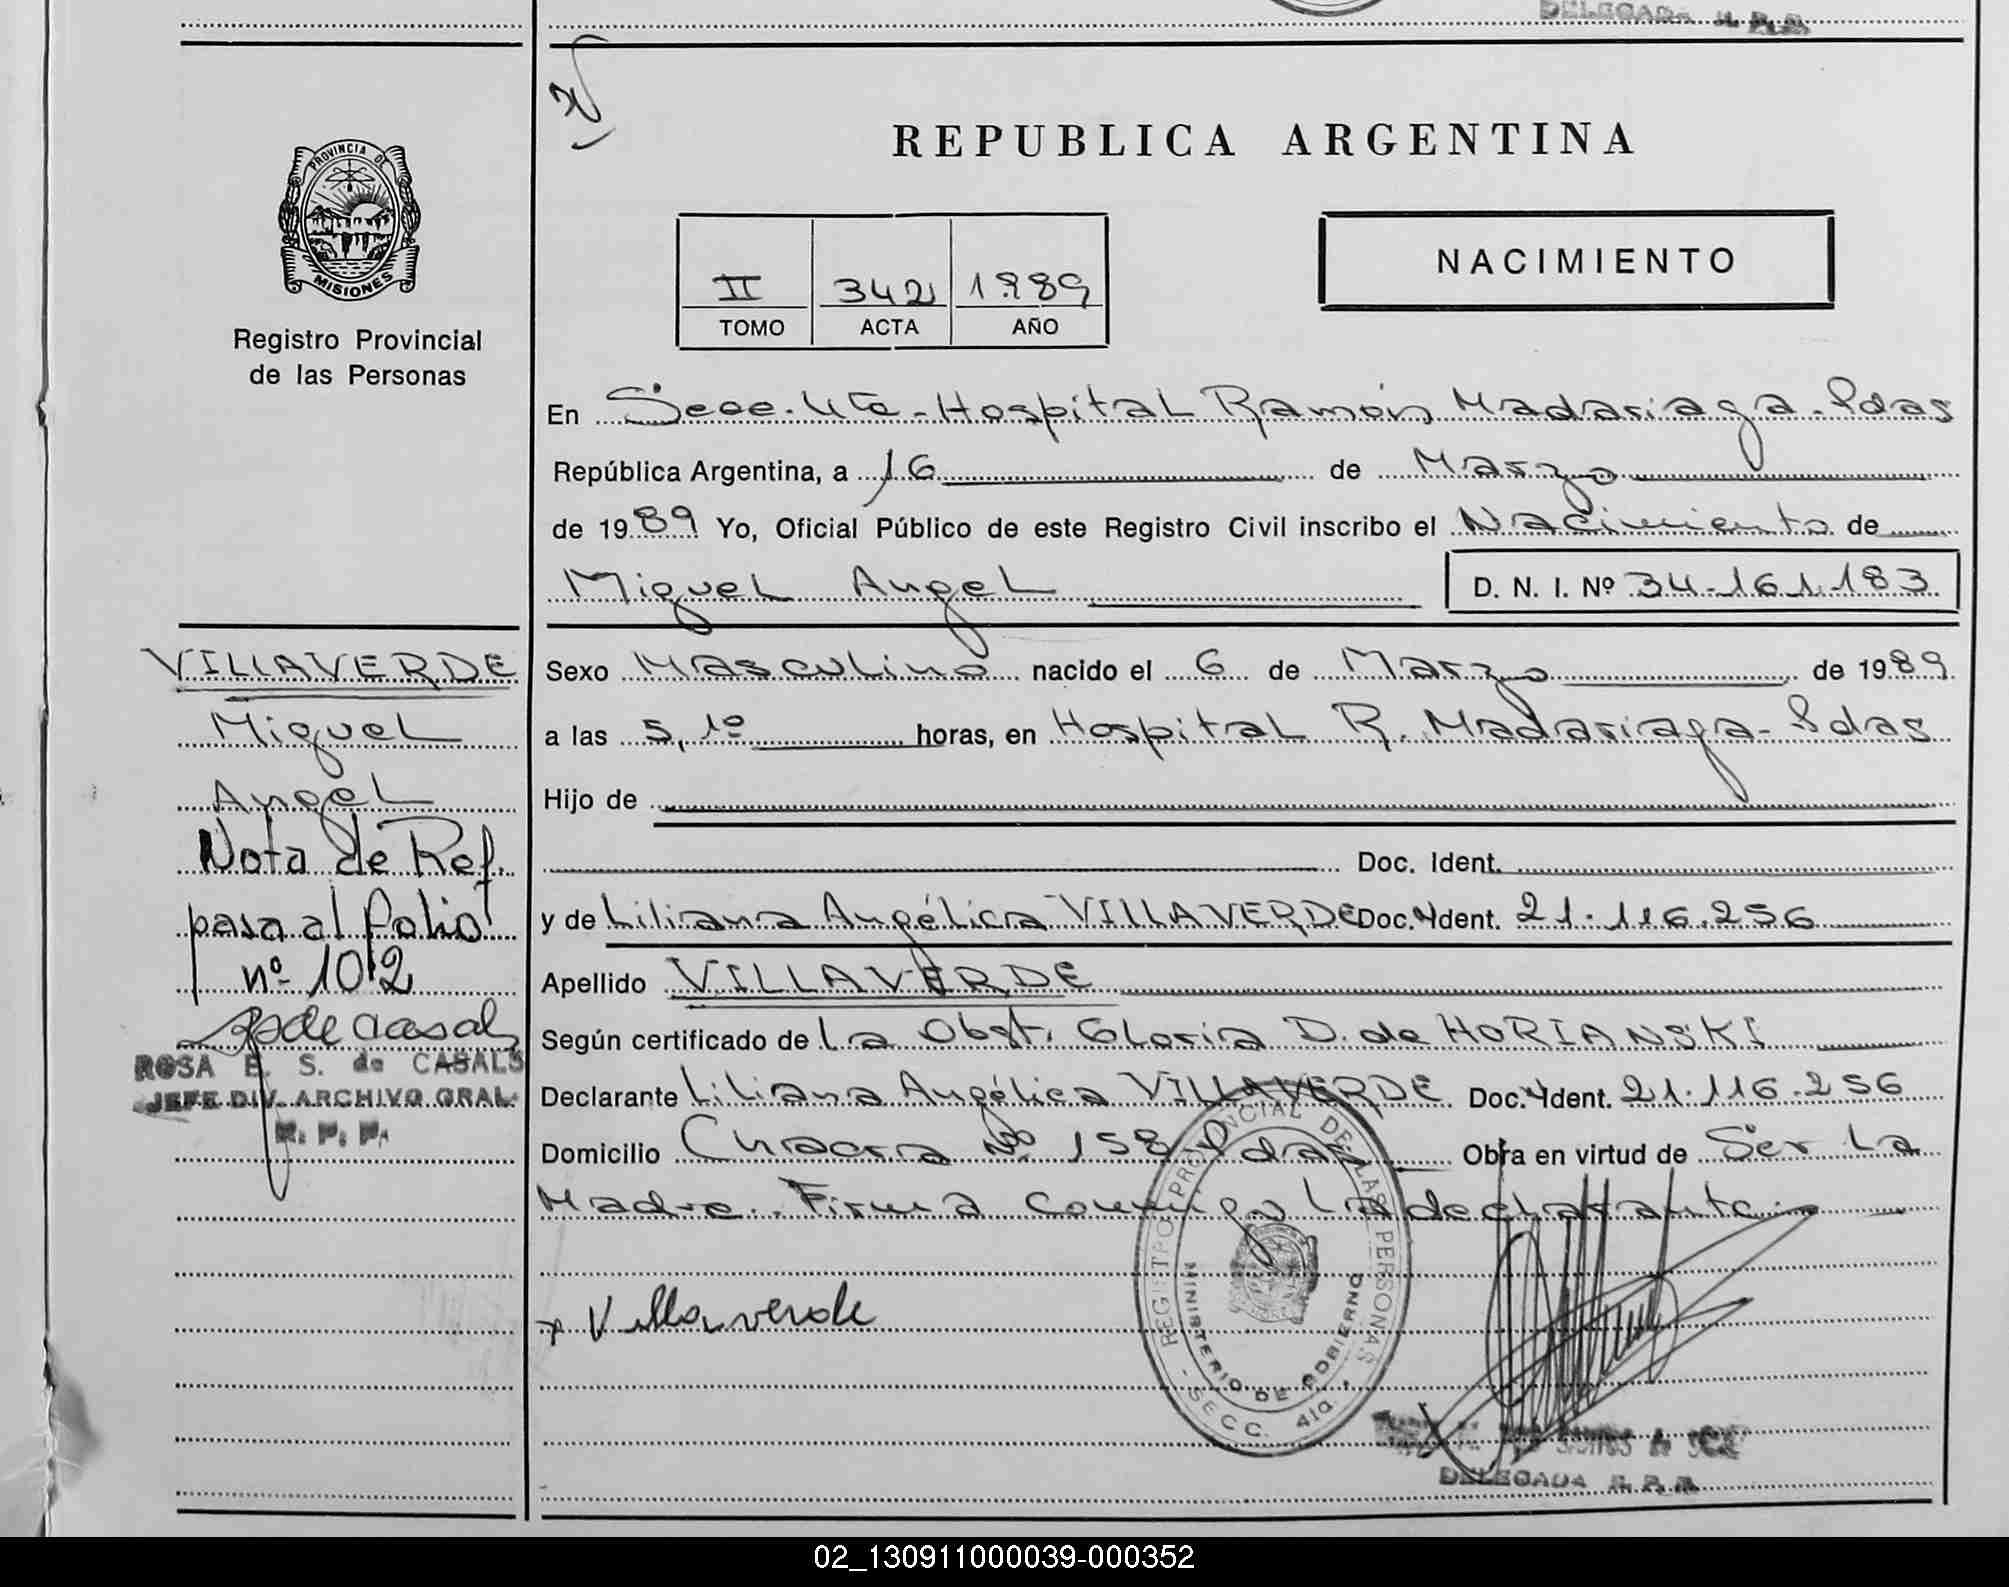 DELEGADA R. P. P.
REPUBLICA ARGENTINA
PROVINCIA DE
MISIONES
Registro Provincial
de las Personas
NACIMIENTO
II 342 1989
TOMO ACTA AÑO
En Secc. 4ta - Hospital Ramón Madariaga - Pdas
República Argentina, a 16 de Marzo
de 1989 Yo, Oficial Público de este Registro Civil inscribo el Nacimiento de
Miguel Angel D. N. I. Nº 34.161.183
VILLAVERDE
Miguel
Angel
Nota de Ref.
pasa al folio
nº 102
ROSA E. S. de CASALS
JEFE DIV. ARCHIVO GRAL.
R. P. P.
Sexo Masculino nacido el 6 de Marzo de 1989
a las 5,1º horas, en Hospital R. Madariaga - Pdas
Hijo de
Doc. Ident.
y de Liliana Angélica VILLAVERDE Doc. Ident. 21.116.256
Apellido VILLAVERDE
Según certificado de La Obst. Gloria D. de HORIANSKI
Declarante Liliana Angélica VILLAVERDE Doc. Ident. 21.116.256
Domicilio Chacra Nº 158 Pdas Obra en virtud de Ser La
Madre. Firma Conmigo La declarante.
Villaverde
REGISTRO PROVINCIAL DE LAS PERSONAS
MINISTERIO DE GOBIERNO
- SECC. 4ta. -
DELEGADA R. P. P.
02_130911000039-000352